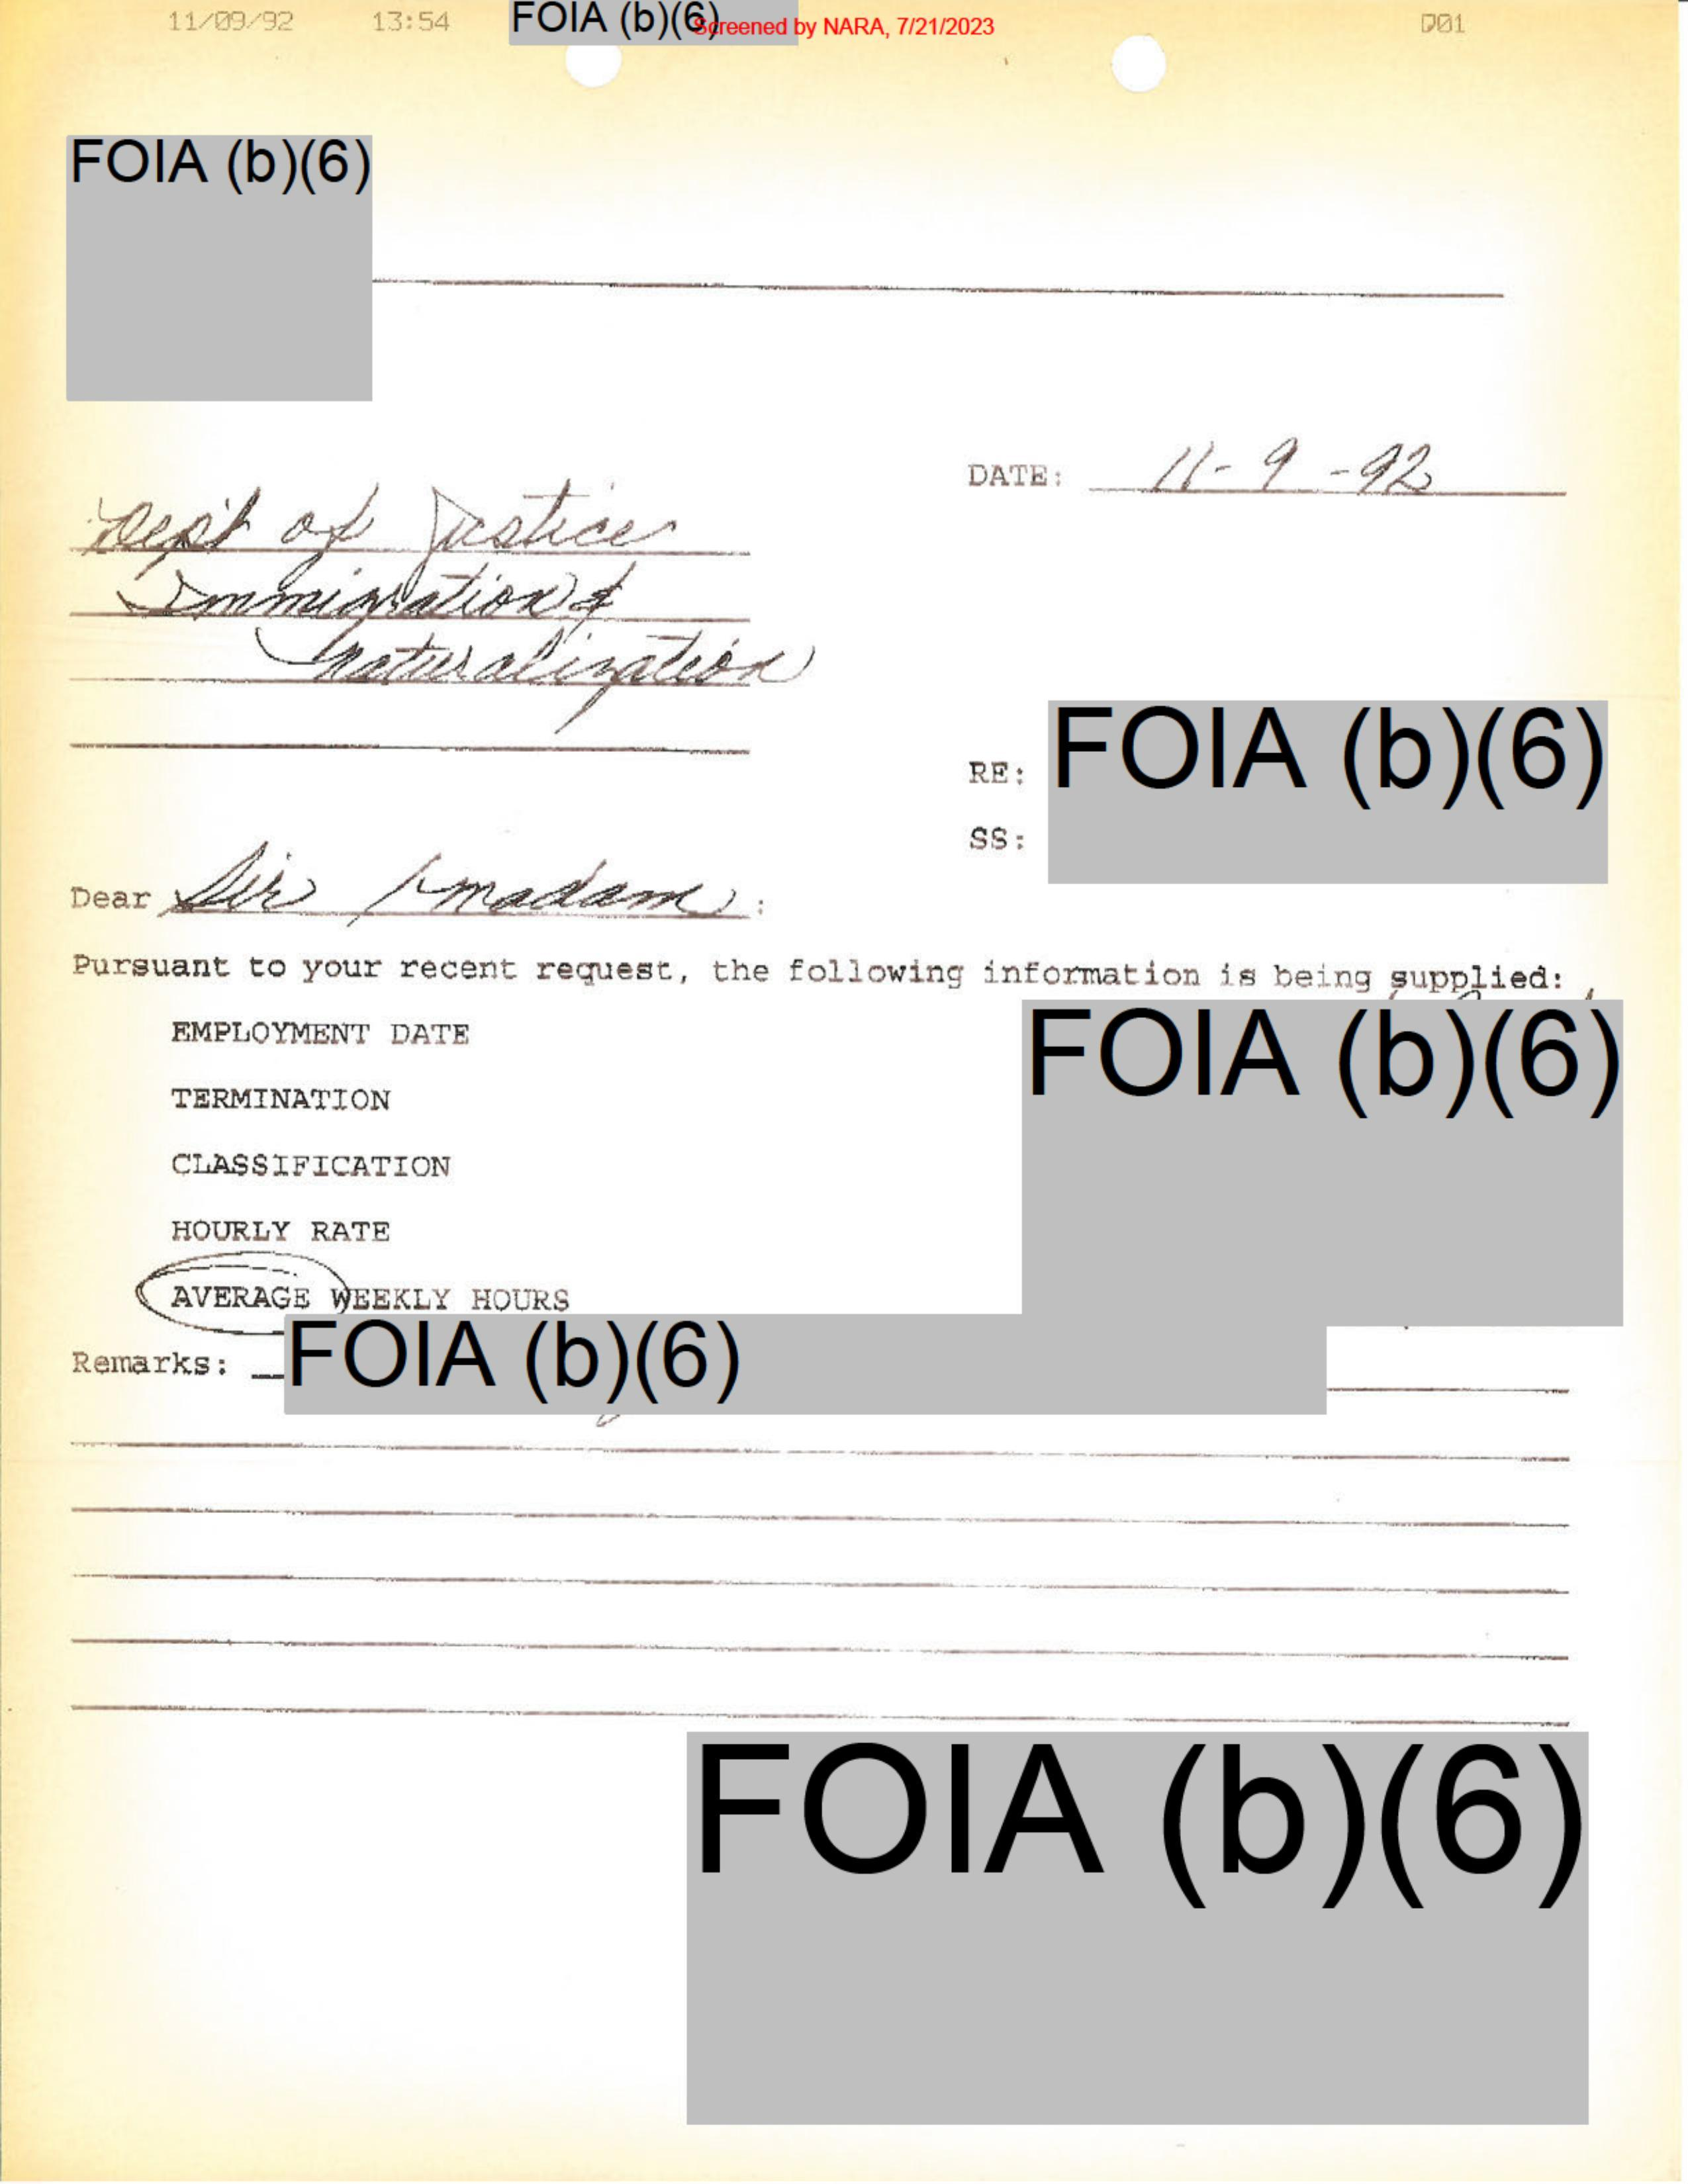 11/09/92 13:54 FOIA (b)(6) Screened by NARA, 7/21/2023 D01
FOIA (b)(6)
DATE: 11-9-92
Dep't of Justice
Immigration &
Naturalization
RE: FOIA (b)(6)
SS:
Dear Sir / Madam :
Pursuant to your recent request, the following information is being supplied:
EMPLOYMENT DATE FOIA (b)(6)
TERMINATION
CLASSIFICATION
HOURLY RATE
AVERAGE WEEKLY HOURS
Remarks: FOIA (b)(6)
FOIA (b)(6)